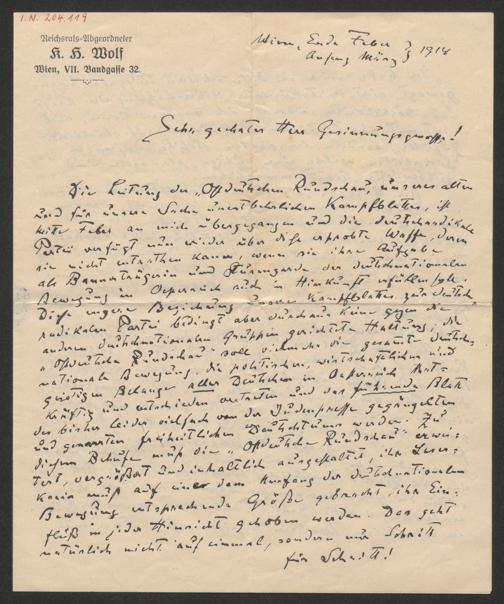 I.N. 204.119
Reichsrats-Abgeordneter
K. H. Wolf
Wien, VII. Bandgasse 32.
Wien, Ende Feber
Anfang März } 1918
Sehr geehrter Herr Gesinnungsgenosse!
Die Leitung der „Ostdeutschen Rundschau", unseres alten
und für unsere Sache unentbehrlichen Kampfblattes, ist
Feber an mich übergegangen und die deutschradikale
Partei verfügt nun wieder über diese erprobte Waffe, deren
sie nicht entrathen kann, wenn sie ihre Aufgabe
als Bannerträgerin und Sturmgarde der deutschnationalen
Bewegung in Oesterreich auch in Hinkunft erfüllen soll.
Diese engere Beziehung unseres Kampfblattes zur deutsch-
radikalen Partei bedingt aber durchaus keine gegen die
anderen deutschnationalen Gruppen gerichtete Haltung, die
„Ostdeutsche Rundschau" soll vielmehr die gesamte deutsch-
nationale Bewegung, die politischen, wirtschaftlichen und
geistigen Belange aller Deutschen in Oesterreich that-
kräftig und entschieden vertreten und das führende Blatt
des bisher leider vielfach von der Judenpresse gegängelten
und genarrten freiheitlichen Deutschtums werden. Zu
diesem Behufe muß die „Ostdeutsche Rundschau" erwei-
tert, vergrößert und inhaltlich ausgestaltet, ihr Leser-
kreis muß auf eine dem Umfang der deutschnationalen
Bewegung entsprechende Größe gebracht, ihr Ein-
fluß in jeder Hinsicht gehoben werden. Das geht
natürlich nicht auf einmal, sondern nur Schritt
für Schritt!